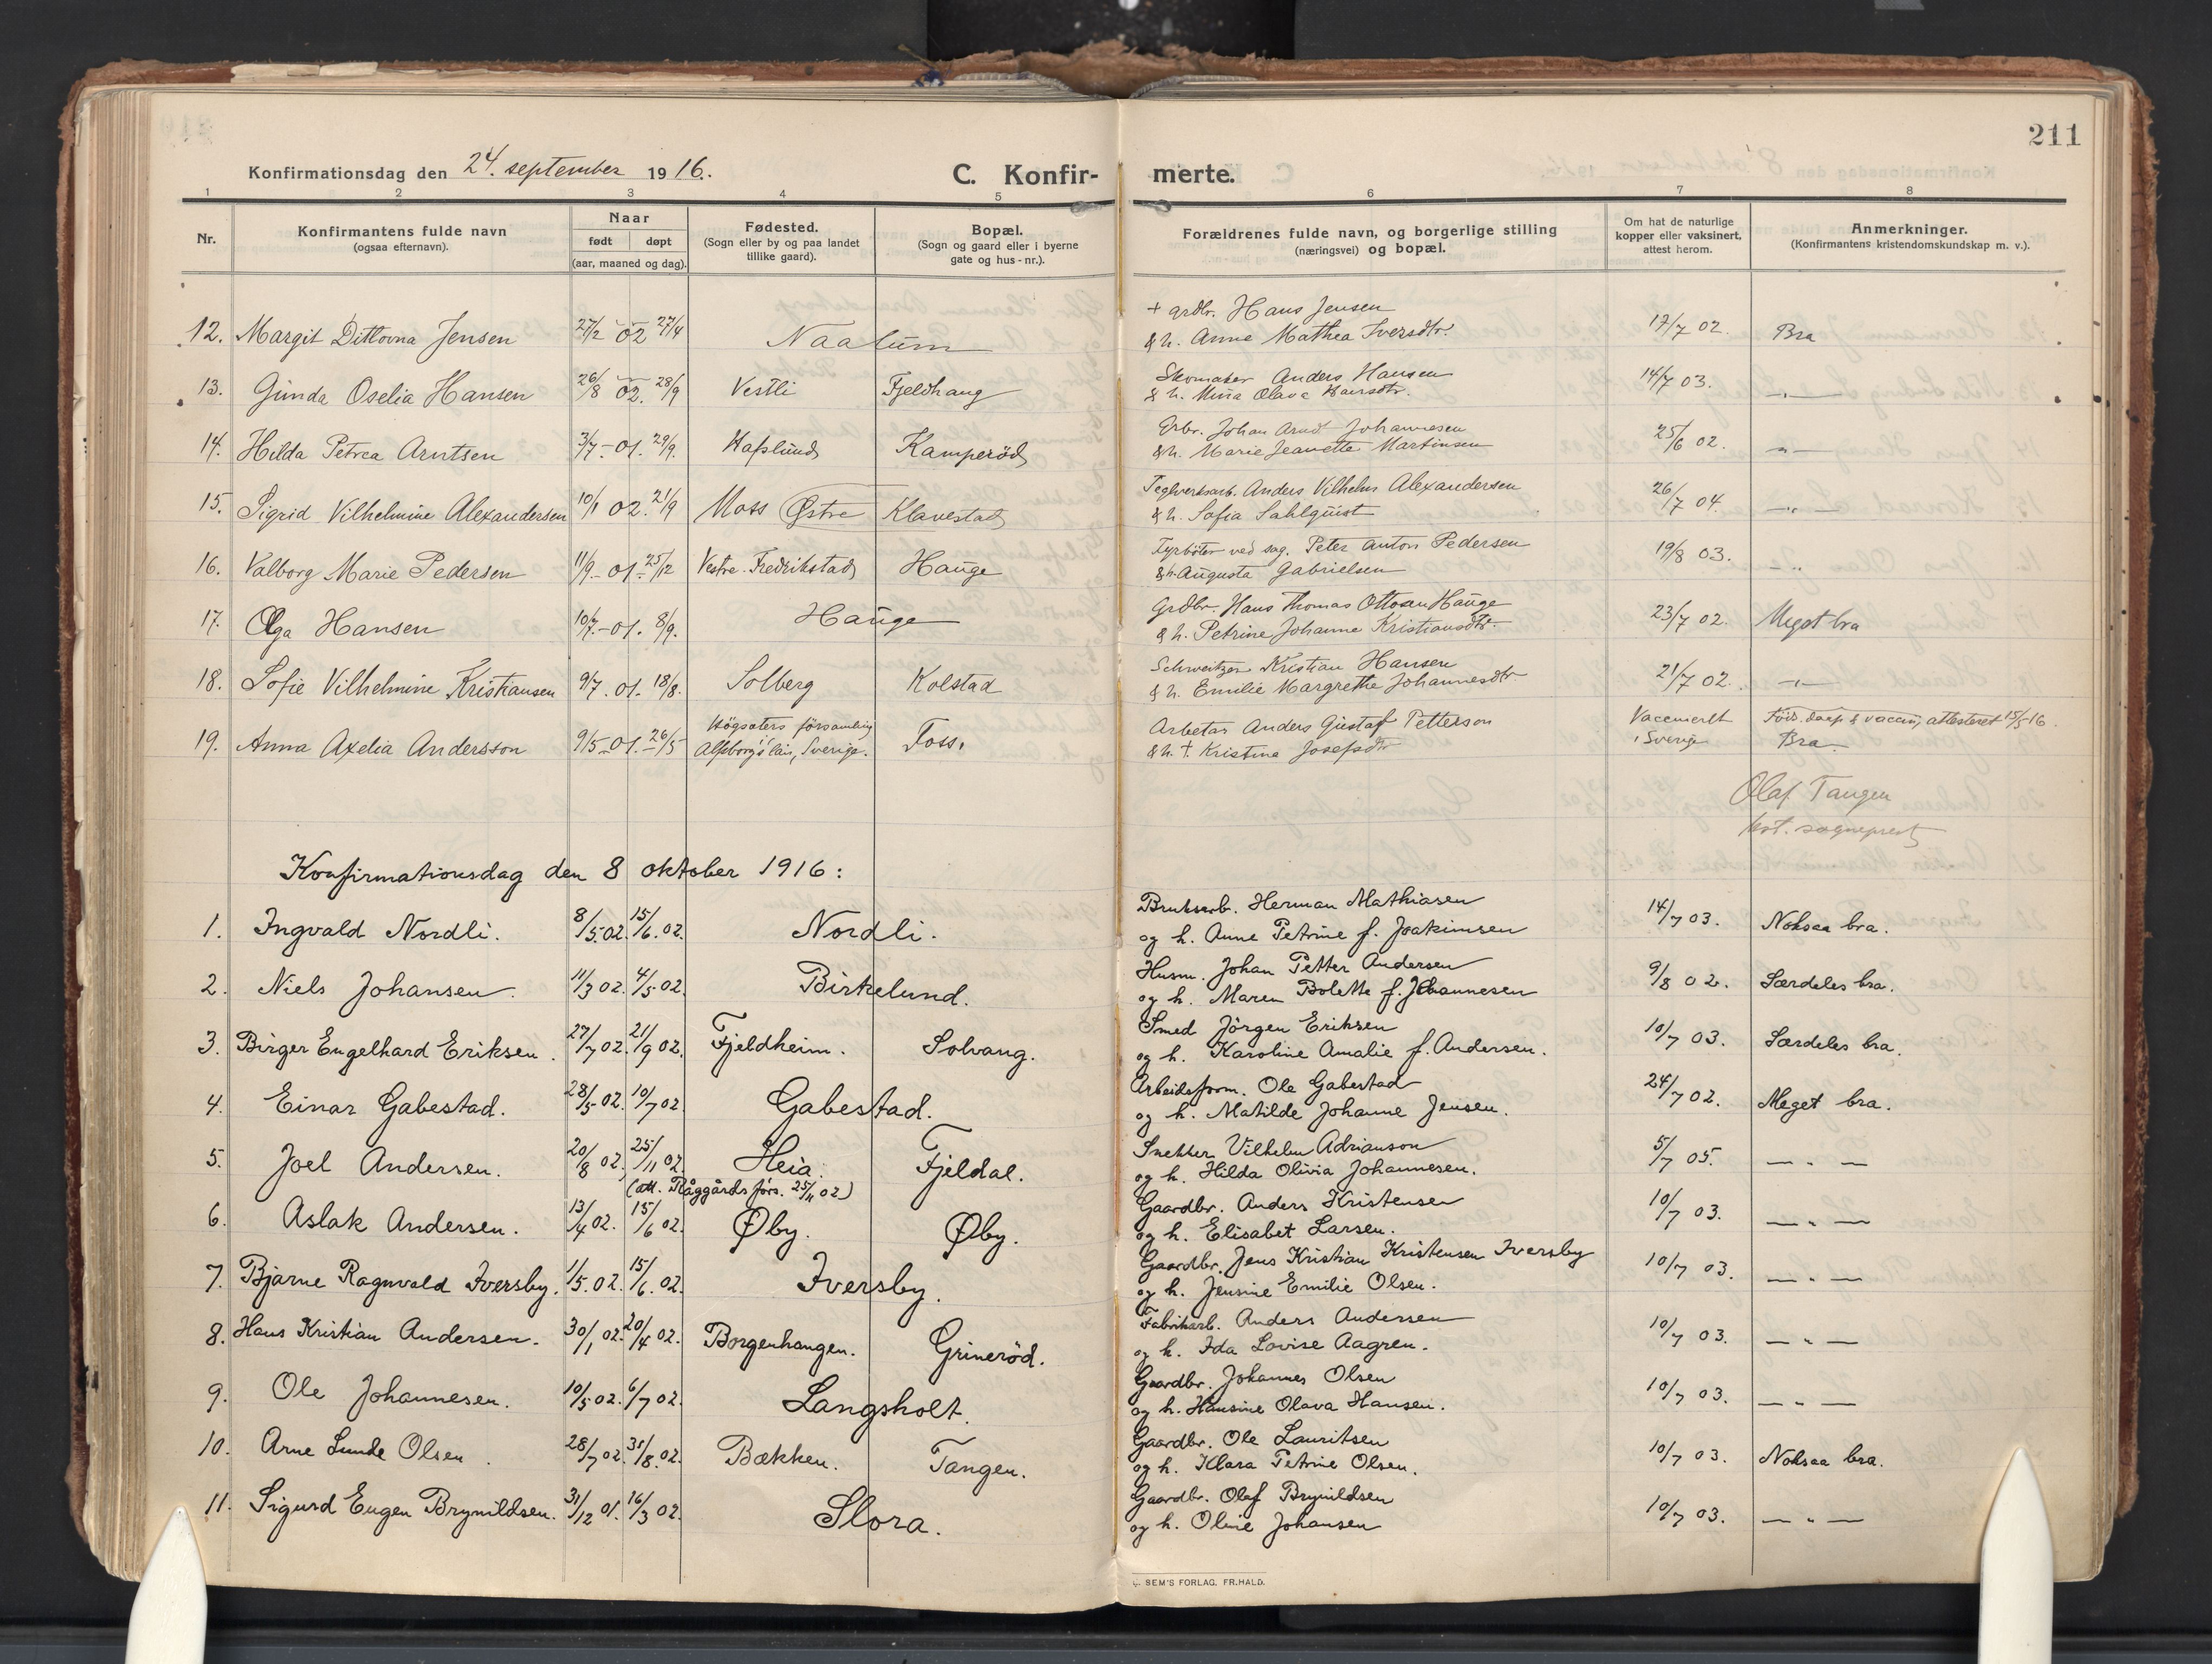 211
Konfirmationsdag den 24. september 1916.
C. Konfirmerte.
1 2 3 4 5 6 7 8
Nr.
Konfirmantens fulde navn
(ogsaa efternavn).
Naar
født døpt
(aar, maaned og dag).
Fødested.
(Sogn eller by og paa landet
tillike gaard).
Bopæl.
(Sogn og gaard eller i byerne
gate og hus-nr.).
Forældrenes fulde navn, og borgerlige stilling
(næringsvei) og bopæl.
Om hat de naturlige
kopper eller vaksinert,
attest herom.
Anmerkninger.
(Konfirmantens kristendomskundskap m. v.).
12. Margit Dittovna Jensen 27/2 02 27/4 Naalum
+ grdbr. Hans Jensen
& h. Anne Mathea Iversdtr.
17/7 02. Bra
13. Gunda Oselia Hansen 26/8 02. 28/9 Vestli Fjeldhaug
Skomaker Anders Hansen
& h. Mina Olava Hansdtr.
14/7 03. -"-
14. Hilda Petrea Arntsen 3/7-01. 29/9. Hafslund Kamperød
Erbr. Johan Arnt Johannesen
& h. Marie Jeanette Martinsen
25/6 02. -"-
15. Sigrid Vilhelmine Alexandersen 10/1 02. 21/9 Moss Østre Klavestad
Teglverksarb. Anders Vilhelm Alexandersen
& h. Sofia Sahlquist
26/7 04. -"-
16. Valborg Marie Pedersen 11/9-01-25/12 Vestre Fredrikstad Hauge
Fyrbøter ved sag. Peter Anton Pedersen
& h. Augusta Gabrielsen
19/8 03. -"-
17. Olga Hansen 10/7.-01. 8/9. Hauge
Grdbr. Hans Thomas Ottosen Hauge
& h. Petrine Johanne Kristiansdtr.
23/7 02. Meget bra
18. Sofie Vilhelmine Kristiansen 9/7.01. 18/8. Solberg Kolstad
Schweitzer Kristian Hansen
& h. Emilie Margrethe Johannesdtr.
21/7 02. -"-
19. Anna Axelia Andersson 9/5-01.-26/5 Högsäters församling
Alfsborgs län, Sverige. Foss.
Arbetar Anders Gustaf Petterson
& h. † Kristina Josefsdtr
Vaccinerit
i Sverige
Føds. daap & vaccin, attesteret 15/5 16.
Bra
Olaf Tangen
kst. sogneprest
Konfirmationsdag den 8 oktober 1916:
1. Ingvald Nordli. 8/5.02. 15/6.02. Nordli.
Bruksarb. Herman Mathiasen
og h. Anne Petrine f. Joakimsen
14/7 03. Noksaa bra.
2. Niels Johansen. 11/3 02. 4/5 02. Birkelund.
Husm. Johan Petter Andersen
og h. Maren Bolette f. Johannesen
9/8 02. Særdeles bra.
3. Birger Engelhard Eriksen. 27/7 02. 21/9 02. Fjeldheim. Solvang.
Smed Jörgen Eriksen
og h. Karoline Amalie f. Andersen.
10/7 03. Særdeles bra.
4. Einar Gabestad. 28/5 02. 10/7 02. Gabestad.
Arbeidsform. Ole Gabestad
og h. Matilde Johanne Jensen.
24/7 02. Meget bra.
5. Joel Andersen. 20/8 02. 25/11 02. Heia. Fjeldal.
(att. Råggärds förs. 25/11 02)
Snekker Vilhelm Adrianson
og h. Hilda Olivia Johannesen.
5/7 05. — " —
6. Aslak Andersen. 13/4 02. 15/6 02. Øby. Øby.
Gaardbr. Anders Kristensen
og h. Elisabet Larsen.
10/7 03. — " —
7. Bjarne Ragnvald Iversby. 1/5.02. 15/6.02. Iversby.
Gaardbr. Jens Kristian Kristensen Iversby
og h. Jensine Emilie Olsen.
10/7 03. — " —
8. Hans Kristian Andersen. 30/1 02. 20/4 02. Borgenhaugen. Grinerød.
Fabrikarb. Anders Andersen
og h. Ida Lovise Aagren.
10/7 03. — " —
9. Ole Johannesen. 10/5 02. 6/7 02. Langsholt.
Gaardbr. Johannes Olsen
og h. Hansine Olava Hansen.
10/7 03. — " —
10. Arne Lunde Olsen. 28/7 02. 31/8.02. Bækken. Tangen.
Gaardbr. Ole Lauritsen
og h. Klara Petrine Olsen.
10/7 03. Noksaa bra.
11. Sigurd Eugen Brynildsen. 31/12 01. 16/3 02. Slora.
Gaardbr. Olaf Brynildsen
og h. Oline Johansen
10/7 03. — " —
SEM'S FORLAG, FR.HALD.